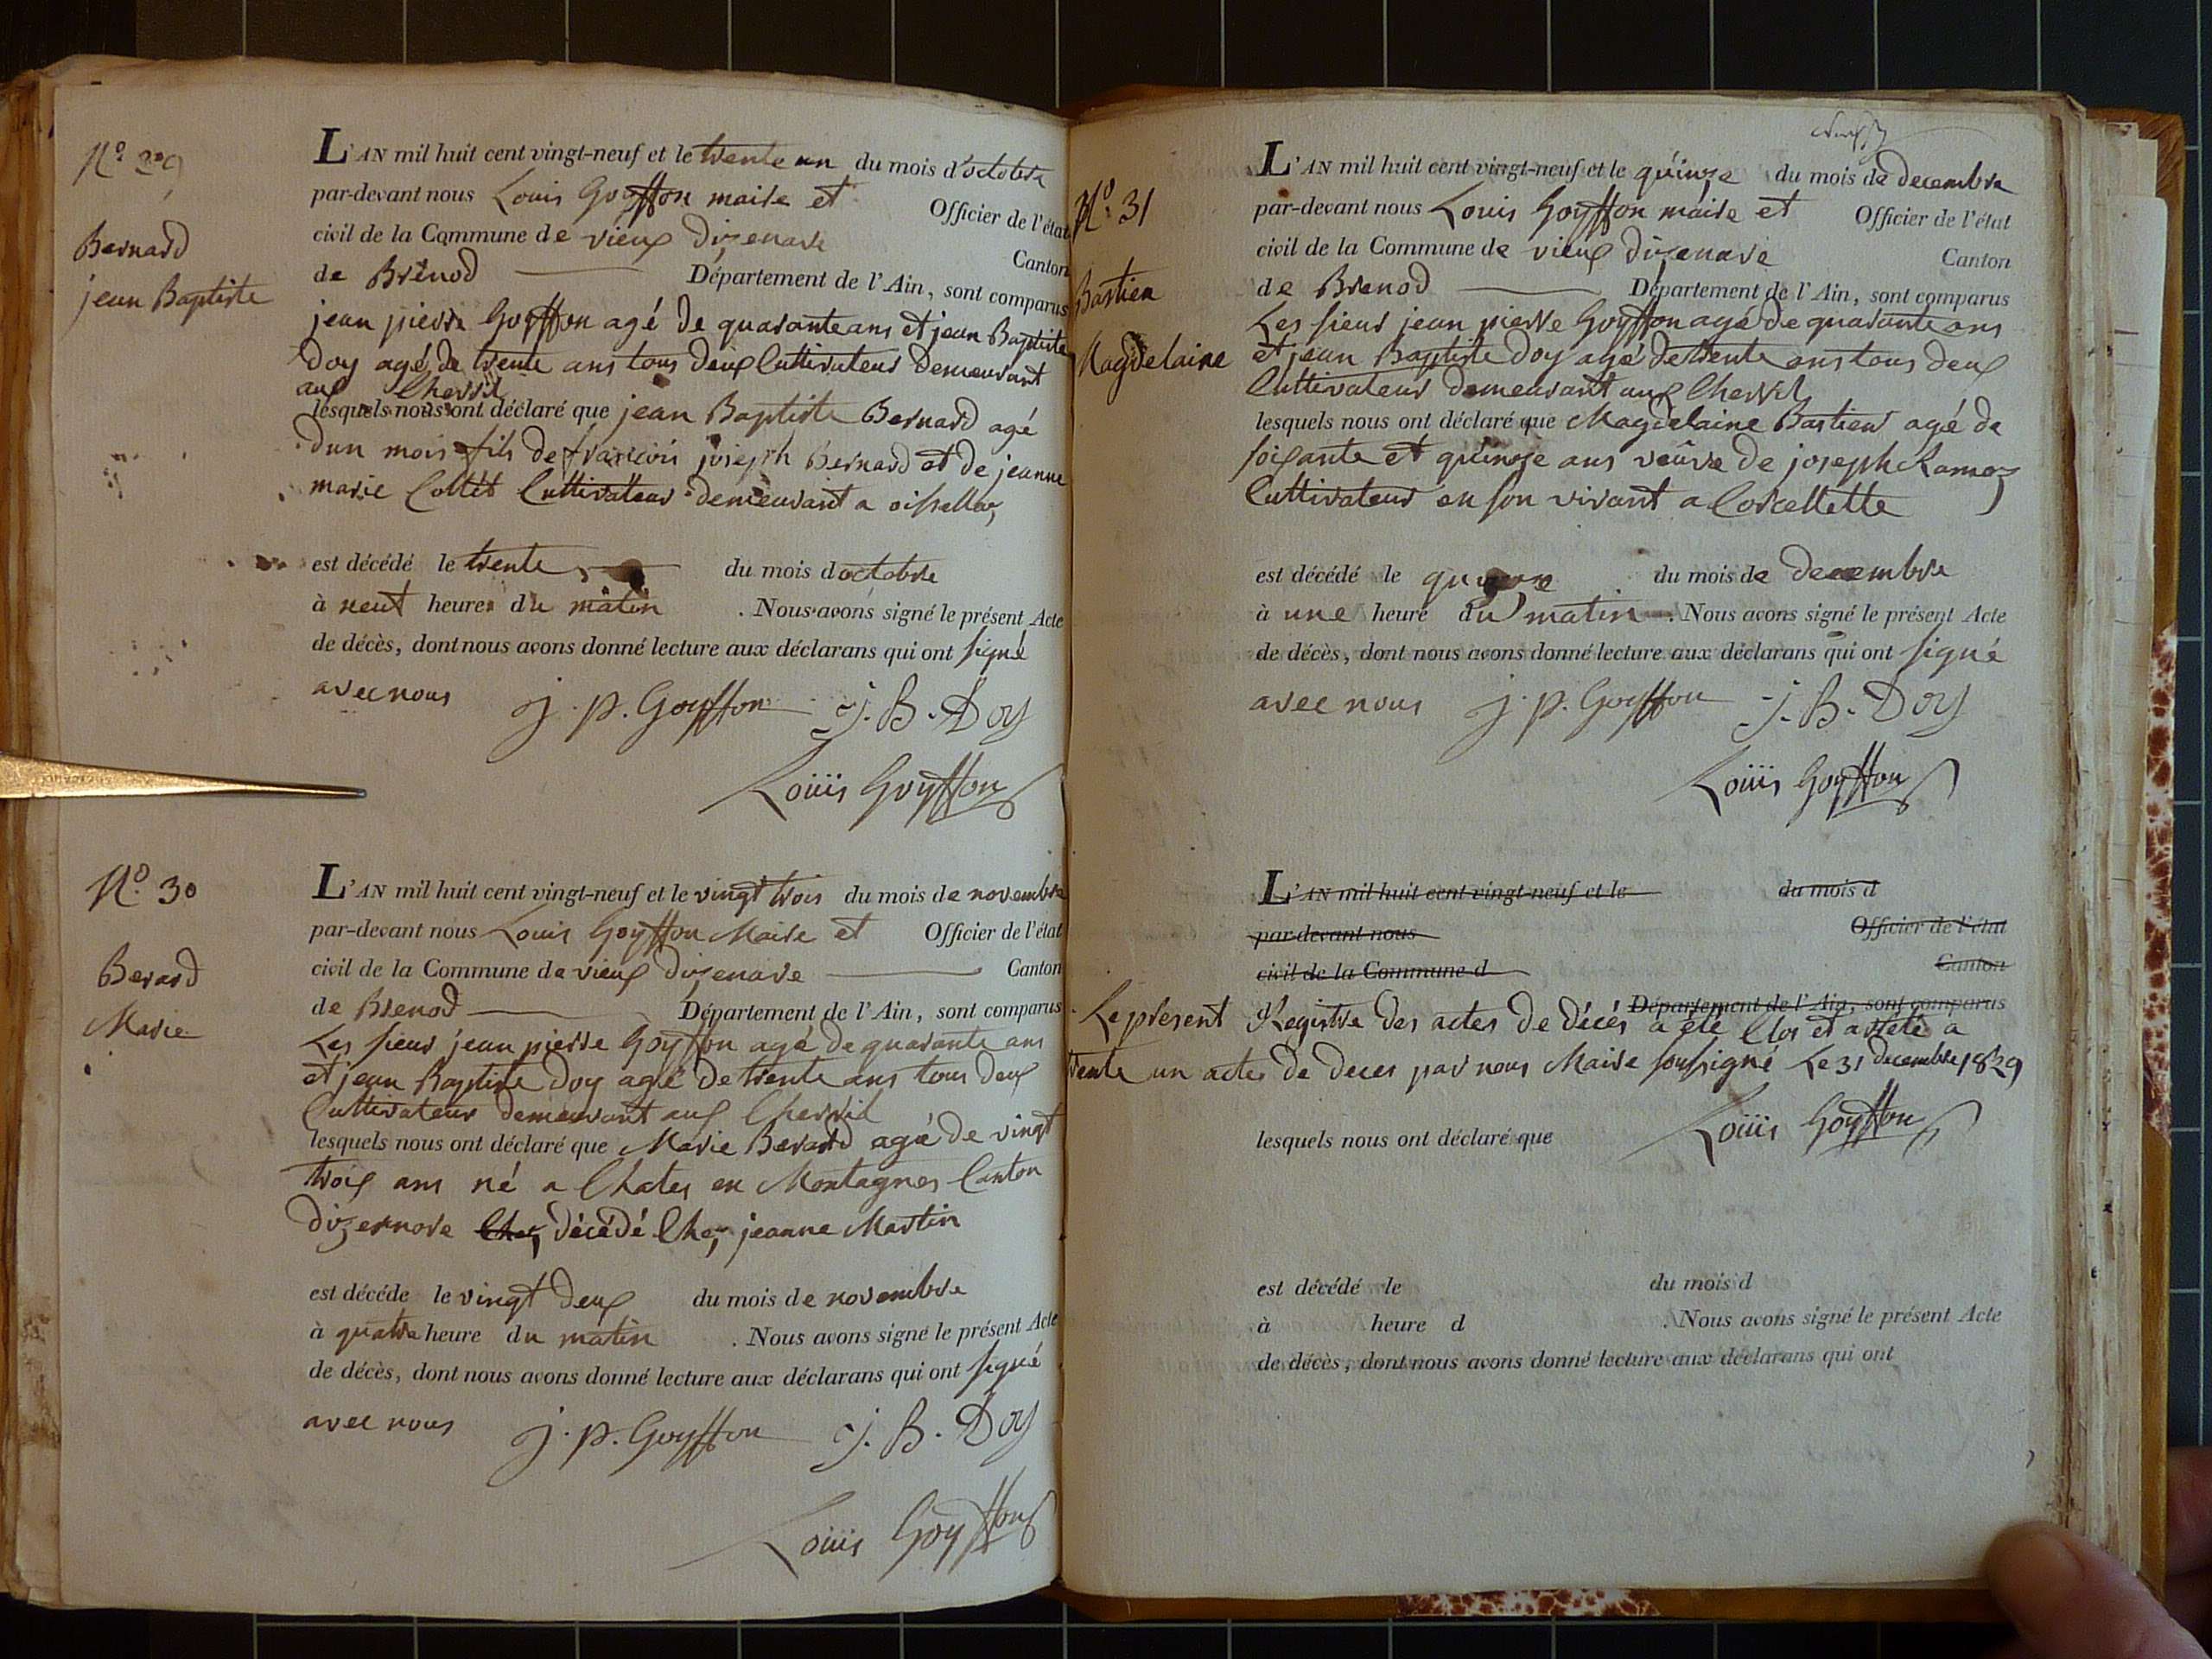 N.o 29
Bernard
jean Baptiste
L'AN mil huit cent vingt-neuf et le trente un du mois d'octobre
par-devant nous Louis Goyffon maire et Officier de l'état
civil de la Commune de vieux dizenave Canton
de Brénod Département de l'Ain, sont comparus
jean pierre Goyffon agé de quarante ans et jean Baptiste
Doy agé de trente ans tous deux Cultivateurs Demeurant
aux Chevril
lesquels nous ont déclaré que jean Baptiste Bernard agé
dun mois fils de françois joseph Bernard et de jeanne
marie Collet Cultivateur demeurant a oissellaz
est décédé le trente du mois doctobre
à neuf heures du matin . Nous avons signé le présent Acte
de décès, dont nous avons donné lecture aux déclarans qui ont signé
avec nous j. p. Goyffon j. B. Doy
Louis Goyffon
N.o 30
Berard
Marie
L'AN mil huit cent vingt-neuf et le vingt trois du mois de novembre
par-devant nous Louis Goyffon Maire et Officier de l'état
civil de la Commune de vieux dizenave Canton
de Brenod Département de l'Ain, sont comparus
Les sieur jean pierre Goyffon agé de quarante ans
et jean Baptiste Doy agé de trente ans tous deux
Cultivateur demeurant aux Chevril
lesquels nous ont déclaré que Marie Berard agé de vingt
trois ans né a Chates en Montagnes Canton
dizernore Chez décédé Chez jeanne Martin
est décédé le vingt deux du mois de novembre
à quatre heure du matin . Nous avons signé le présent Acte
de décès, dont nous avons donné lecture aux déclarans qui ont signé
avec nous j. p. Goyffon j. B. Doy
Louis Goyffon
N.o 31
Bastien
Magdelaine
L'AN mil huit cent vingt-neuf et le quinze du mois de decembre
par-devant nous Louis Goyffon maire et Officier de l'état
civil de la Commune de vieux dizenave Canton
de Brenod Département de l'Ain, sont comparus
Les sieur jean pierre Goyffon agé de quarante ans
et jean Baptiste Doy agé de trente ans tous deux
Cultivateur demeurant aux Chevril
lesquels nous ont déclaré que Magdelaine Bastien agé de
soixante et quinze ans veuve de joseph Ramoz
Cultivateur en son vivant a Corcellette
est décédé le quinze du mois de decembre
à une heure du matin . Nous avons signé le présent Acte
de décès, dont nous avons donné lecture aux déclarans qui ont signé
avec nous j. p. Goyffon j. B. Doy
Louis Goyffon
L'AN mil huit cent vingt-neuf et le du mois d
par-devant nous Officier de l'état
civil de la Commune d Canton
Département de l'Ain, sont comparus
Le présent Registre des actes de décés a été Clos et arreté a
trente un actes de deces par nous Maire soussigné Le 31 decembre 1829
Louis Goyffon
lesquels nous ont déclaré que
est décédé le du mois d
à heure d . Nous avons signé le présent Acte
de décès, dont nous avons donné lecture aux déclarans qui ont